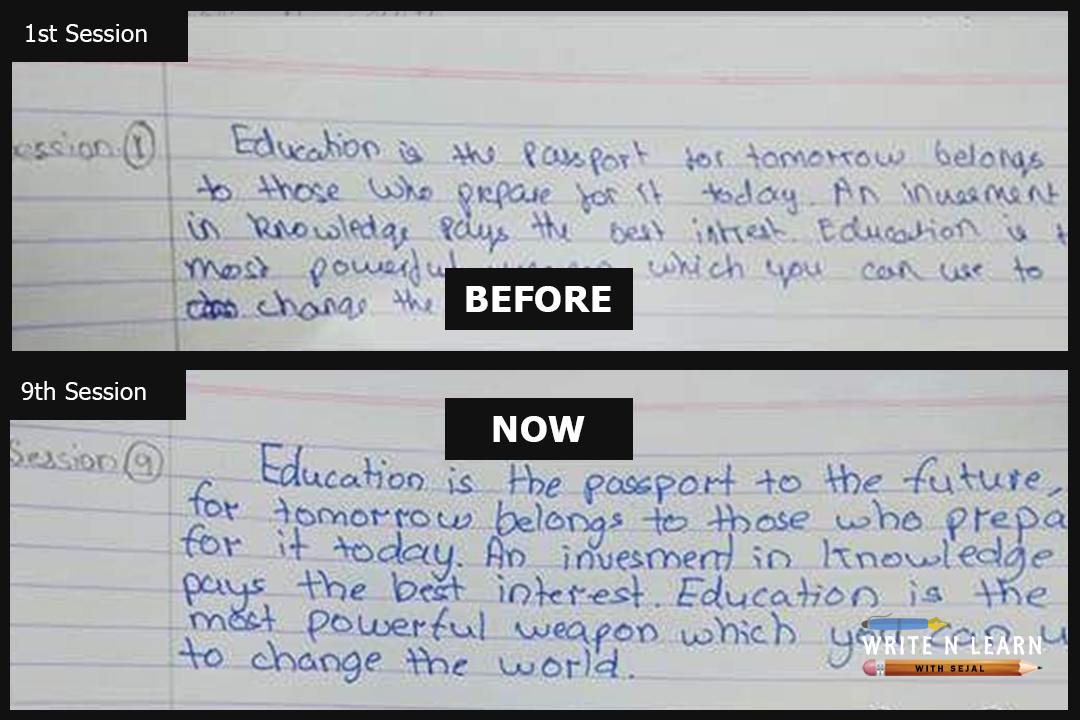 1st Session
ession 1
Education is the passport for tomorrow belongs
to those who prepare for it today. An invesment
in knowledge pays the best intrest. Education is t
most powerful which you can use to
change the
BEFORE
9th Session
NOW
Session 9
Education is the passport to the future,
for tomorrow belongs to those who prepa
for it today. An invesment in knowledge
pays the best interest. Education is the
most powerful weapon which you can u
to change the world.
WRITE N LEARN
WITH SEJAL